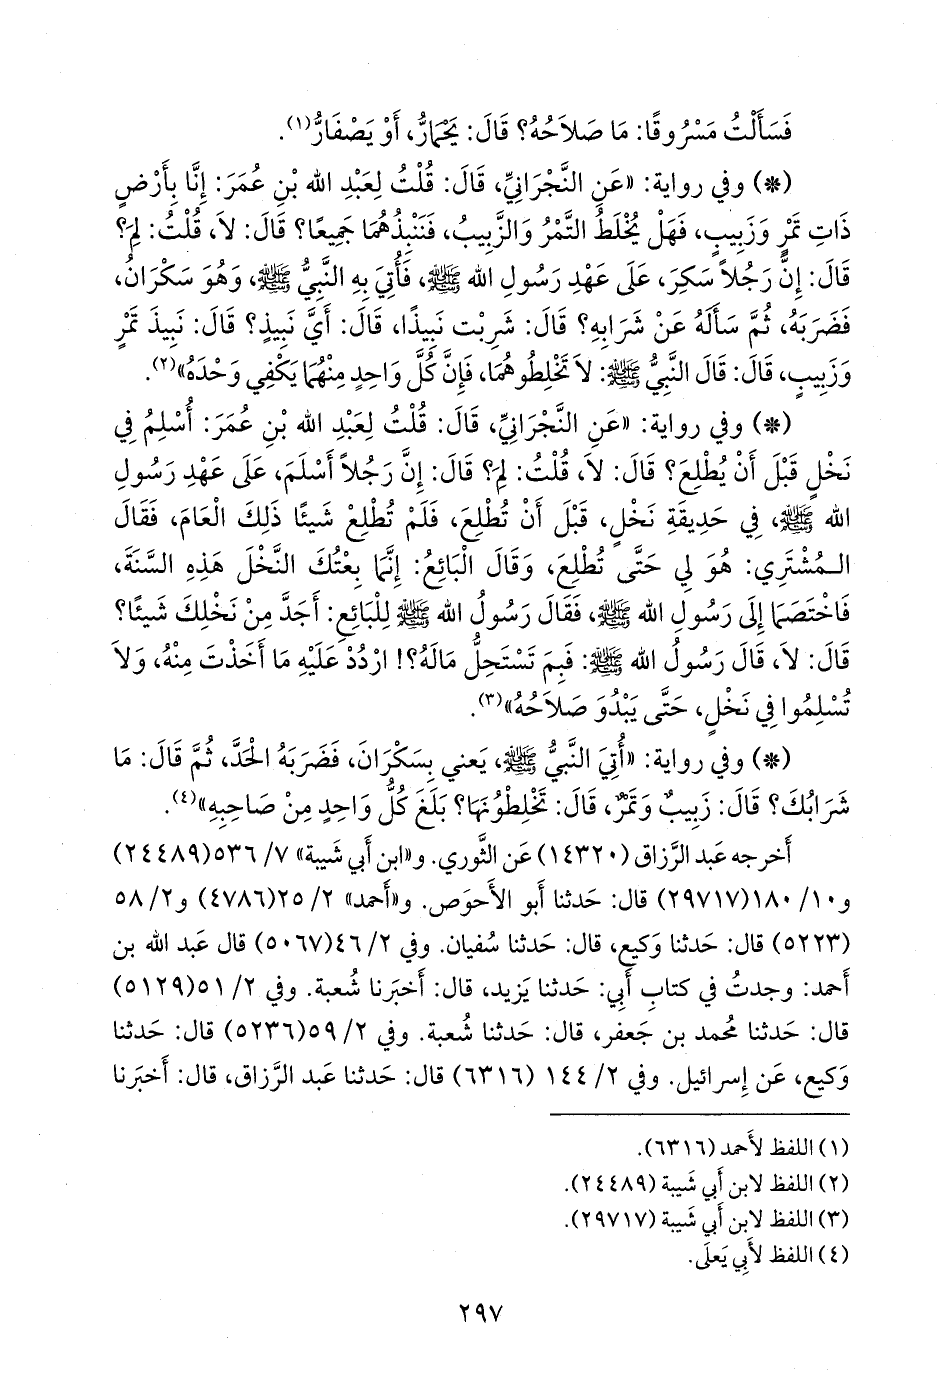 فَسَأَلْتُ مَسْرُوقًا: مَا صَلاَحُهُ؟ قَالَ: يَحْمَارُّ، أَوْ يَصْفَارُّ(١).
(*) وفي رواية: «عَنِ النَّجْرَانِيِّ، قَالَ: قُلْتُ لِعَبْدِ الله بْنِ عُمَرَ: إِنَّا بِأَرْضٍ
ذَاتِ تَمْرٍ وَزَبِيبٍ، فَهَلْ يُخْلَطُ التَّمْرُ وَالزَّبِيبُ، فَنَنْبِذُهُمَا جَمِيعًا؟ قَالَ: لاَ، قُلْتُ: لِمَ؟
قَالَ: إِنَّ رَجُلاً سَكِرَ، عَلَى عَهْدِ رَسُولِ الله ﷺ، فَأُتِيَ بِهِ النَّبِيُّ ﷺ، وَهُوَ سَكْرَانُ،
فَضَرَبَهُ، ثُمَّ سَأَلَهُ عَنْ شَرَابِهِ؟ قَالَ: شَرِبْت نَبِيذًا، قَالَ: أَيَّ نَبِيذٍ؟ قَالَ: نَبِيذَ تَمْرٍ
وَزَبِيبٍ، قَالَ: قَالَ النَّبِيُّ ﷺ: لاَ تَخْلِطُوهُمَا، فَإِنَّ كُلَّ وَاحِدٍ مِنْهُمَا يَكْفِي وَحْدَهُ»(٢).
(*) وفي رواية: «عَنِ النَّجْرَانِيِّ، قَالَ: قُلْتُ لِعَبْدِ الله بْنِ عُمَرَ: أُسْلِمُ فِي
نَخْلٍ قَبْلَ أَنْ يُطْلِعَ؟ قَالَ: لاَ، قُلْتُ: لِمَ؟ قَالَ: إِنَّ رَجُلاً أَسْلَمَ، عَلَى عَهْدِ رَسُولِ
الله ﷺ، فِي حَدِيقَةِ نَخْلٍ، قَبْلَ أَنْ تُطْلِعَ، فَلَمْ تُطْلِعْ شَيْئًا ذَلِكَ الْعَامَ، فَقَالَ
الـمُشْتَرِي: هُوَ لِي حَتَّى تُطْلِعَ، وَقَالَ الْبَائِعُ: إِنَّمَا بِعْتُكَ النَّخْلَ هَذِهِ السَّنَةَ،
فَاخْتَصَمَا إِلَى رَسُولِ الله ﷺ، فَقَالَ رَسُولُ الله ﷺ لِلْبَائِعِ: أَجَدَّ مِنْ نَخْلِكَ شَيئًا؟
قَالَ: لاَ، قَالَ رَسُولُ الله ﷺ: فَبِمَ تَسْتَحِلُّ مَالَهُ؟! ارْدُدْ عَلَيْهِ مَا أَخَذْتَ مِنْهُ، وَلاَ
تُسْلِمُوا فِي نَخْلٍ، حَتَّى يَبْدُوَ صَلاَحُهُ»(٣).
(*) وفي رواية: «أُتِيَ النَّبِيُّ ﷺ، يَعني بِسَكْرَانَ، فَضَرَبَهُ الْحَدَّ، ثُمَّ قَالَ: مَا
شَرَابُكَ؟ قَالَ: زَبِيبٌ وَتَمْرٌ، قَالَ: تَخْلِطُونَهَا؟ بَلَغَ كُلُّ وَاحِدٍ مِنْ صَاحِبِهِ»(٤).
أَخرجه عَبد الرَّزاق (١٤٣٢٠) عَن الثَّوري. و«ابن أَبي شَيبة» ٧/ ٥٣٦(٢٤٤٨٩)
و١٠/ ١٨٠(٢٩٧١٧) قال: حَدثنا أَبو الأَحوَص. و«أَحمد» ٢/ ٢٥(٤٧٨٦) و٢/ ٥٨
(٥٢٢٣) قال: حَدثنا وَكيع، قال: حَدثنا سُفيان. وفي ٢/ ٤٦(٥٠٦٧) قال عَبد الله بن
أَحمد: وجدتُ في كتابِ أَبي: حَدثنا يَزيد، قال: أَخبَرنا شُعبة. وفي ٢/ ٥١(٥١٢٩)
قال: حَدثنا مُحمد بن جَعفر، قال: حَدثنا شُعبة. وفي ٢/ ٥٩(٥٢٣٦) قال: حَدثنا
وَكيع، عَن إِسرائيل. وفي ٢/ ١٤٤ (٦٣١٦) قال: حَدثنا عَبد الرَّزاق، قال: أَخبَرنا
(١) اللفظ لأَحمد (٦٣١٦).
(٢) اللفظ لابن أَبي شَيبة (٢٤٤٨٩).
(٣) اللفظ لابن أَبي شَيبة (٢٩٧١٧).
(٤) اللفظ لأَبي يَعلَى.
٢٩٧